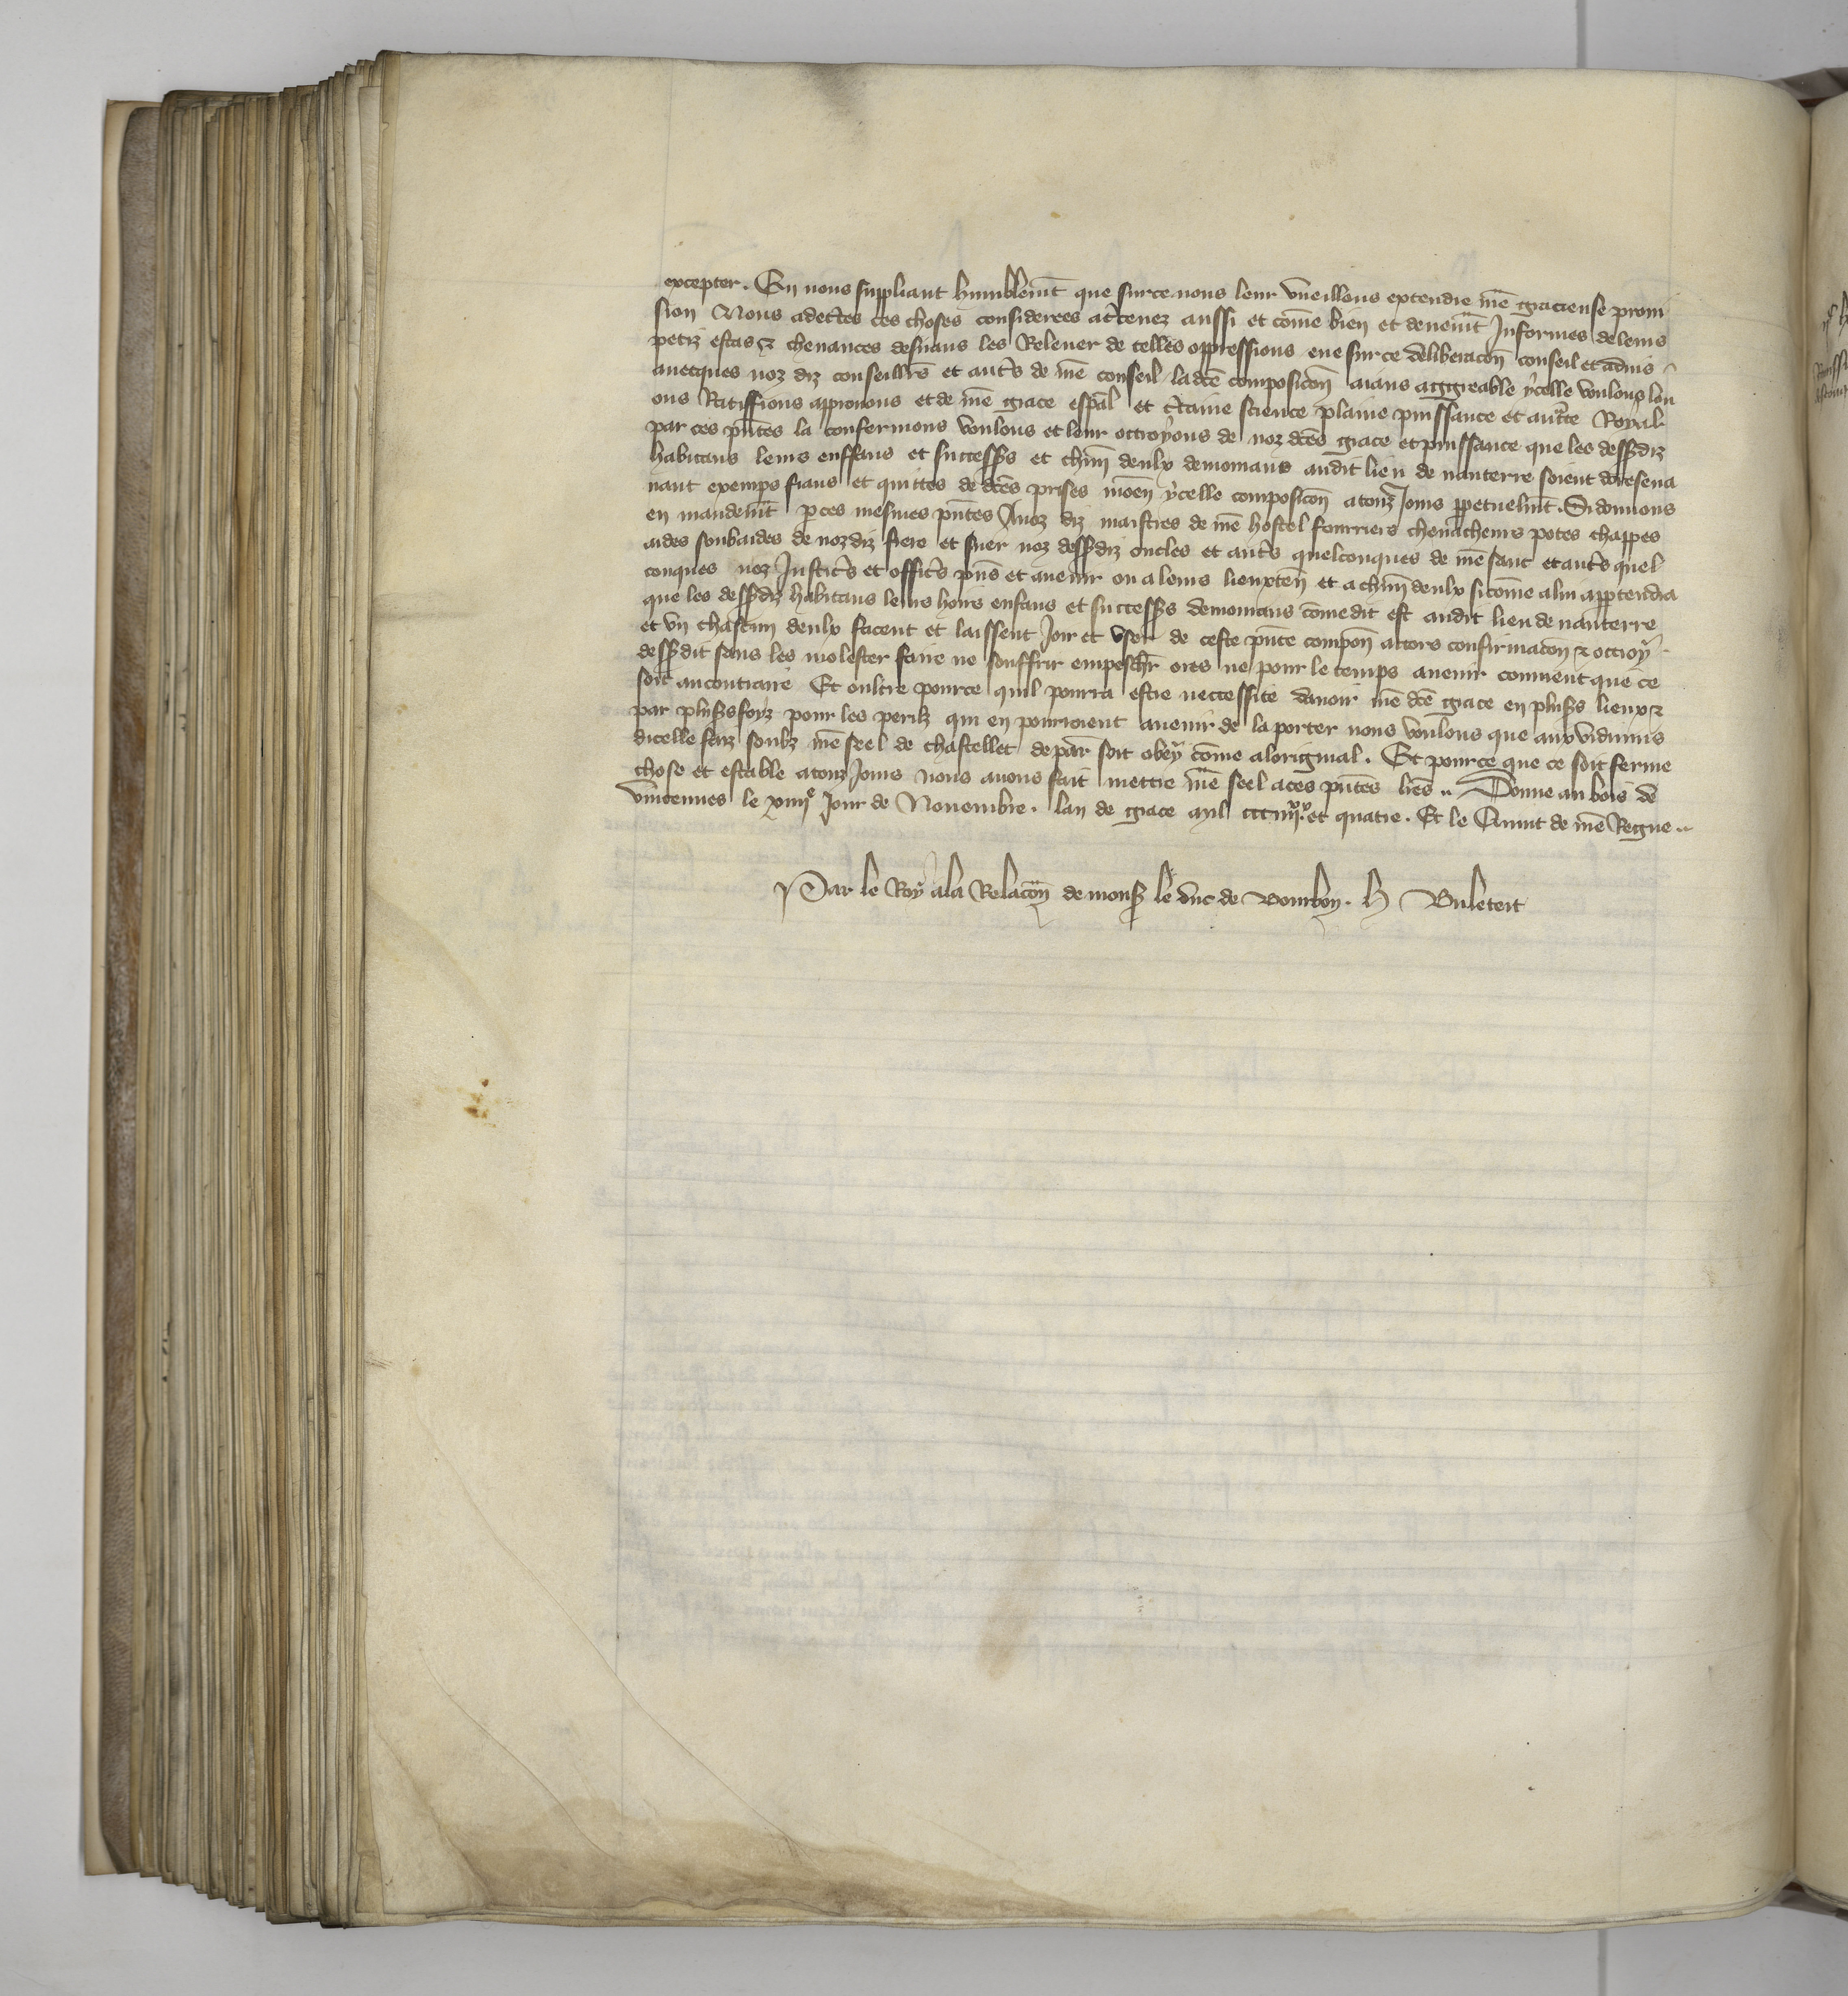 excepter. En nous suppliant humblemt que sur ce nous leur vueillons extendre nre gracieuse provi
sion Nous adcertes ces choses considerees acertenez aussi et come bien et deuemt Informes de leurs
petiz estas & chevances desirans les Relever de telles oppressions eue sur ce deliberacon conseil et advis
avecques noz diz conseillrs et autrs de nre conseil ladce composicon aians aggreable ycelle voulons lou
ons Ratiffions approuvons et de nre grace espal et ctaine science plaine puissance et aucte Royal
par ces pntes la confermons voulons et leur octroyons de noz dces grace et puissance que les dessdiz
habitans leurs enffans et successrs et chun deulx demourans audit lieu de nanterre soient doresena
nant exemps frans et quittes de dces prises moien ycelle composicon a touz Jours ppetuelmt. Si donnons
en mandemt p ces mesmes pntes A noz diz maistres de nre hostel fourriers chevaucheurs potes chappes
aides soubaides de nozdiz frere et suer noz dessdiz oncles et autrs quelconques de nre sanc et autrs quel
conques noz Justicrs et officrs pns et avenir ou a leurs lieuxten et a chun deulx sicome a lui apptendra
que les dessdiz habitans leurs hoirs enfans et successrs demourans come dit est audit lieu de nanterre
et un chascun deulx facent et laissent Joir et user de ceste pnte compon accors confirmacon & octroy
dessdit sans les molester faire ne souffrir empeschr ores ne pour le temps avenir comment que ce
soit au contraire Et oultre pource quil pourra estre neccessite davoir nre dce grace en plusrs lieux &
par plusrs foiz pour les perilz qui en pourroient avenir de la porter nous voulons que aux vidimus
dicelle faiz soubz nre seel de chastellet de par soit obey come a loriginal. Et pource que ce soit ferme
chose et estable a touz Jours nous avons fait mettre nre seel a ces pntes lres .. Donne au bois de
vincennes le xiiije Jour de Novembre. lan de grace mil ccciiijxx et quatre. Et le Quint de nre Regne ..
Par le Roy a la Relacon de monsr le duc de Bourbon. H Buleteit